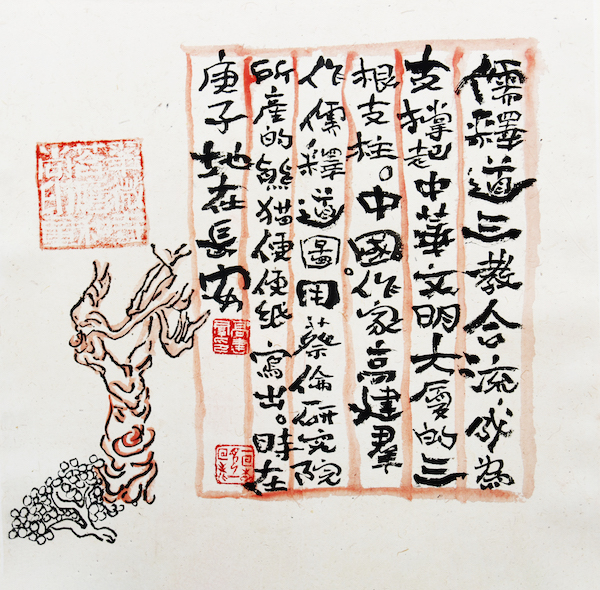 儒釋道三教合流，成為
支撐起中華文明大廈的三
根支柱。中國作家高建群
作儒釋道圖。用蔡倫研究院
所產的熊猫便便紙寫出。時在
庚子地在長安
高建群印